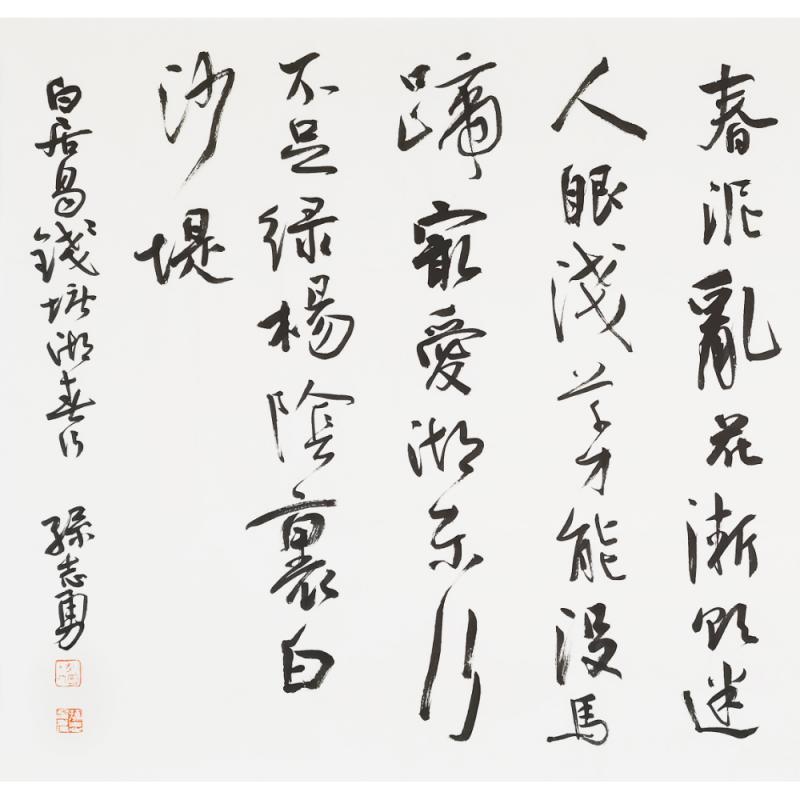 春泥亂花漸欲迷
人眼淺草才能没馬
蹄最愛湖东行
不足绿楊陰裏白
沙堤
白居易錢塘湖春行 孫志勇